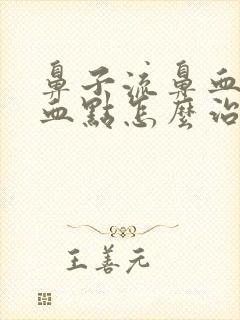 鼻子流鼻血
血點怎麼治
王善元